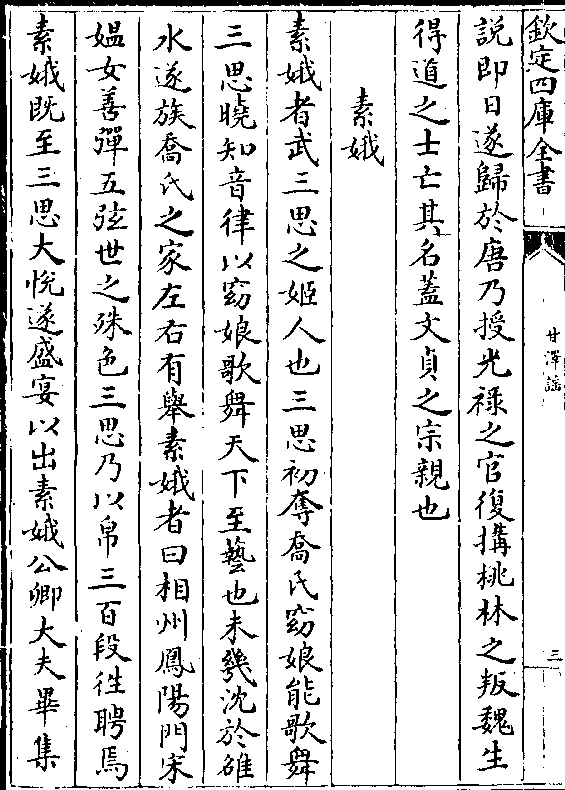 欽定四庫全書
甘澤謠
三
說即日遂歸於唐乃授光祿之官復搆桃林之叛魏生
得道之士亡其名蓋文貞之宗親也
素娥
素娥者武三思之姬人也三思初奪喬氏窈娘能歌舞
三思曉知音律以窈娘歌舞天下至藝也未幾沈於雒
水遂族喬氏之家左右有舉素娥者曰相州鳳陽門宋
媼女善彈五弦世之殊色三思乃以帛三百段往聘焉
素娥既至三思大悅遂盛宴以出素娥公卿大夫畢集